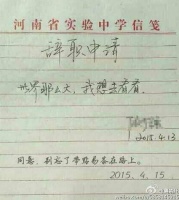 河南省实验中学信笺
辞职申请
世界那么大，我想去看看。
2015.4.13
同意，别忘了带路易答在路上。
2015.4.15